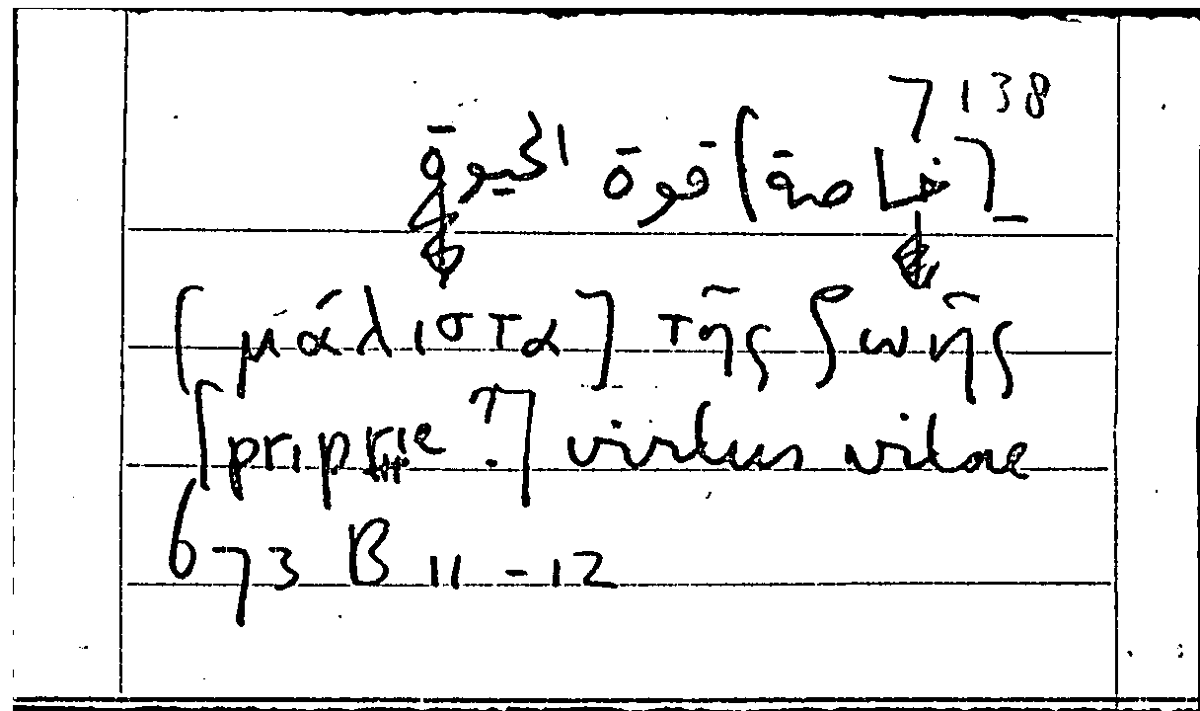 7138
[خاصة] قوة الحيوة
[μάλιστα] τῆς ζωῆς
[priprie ?] virtus vitae
673 B 11-12